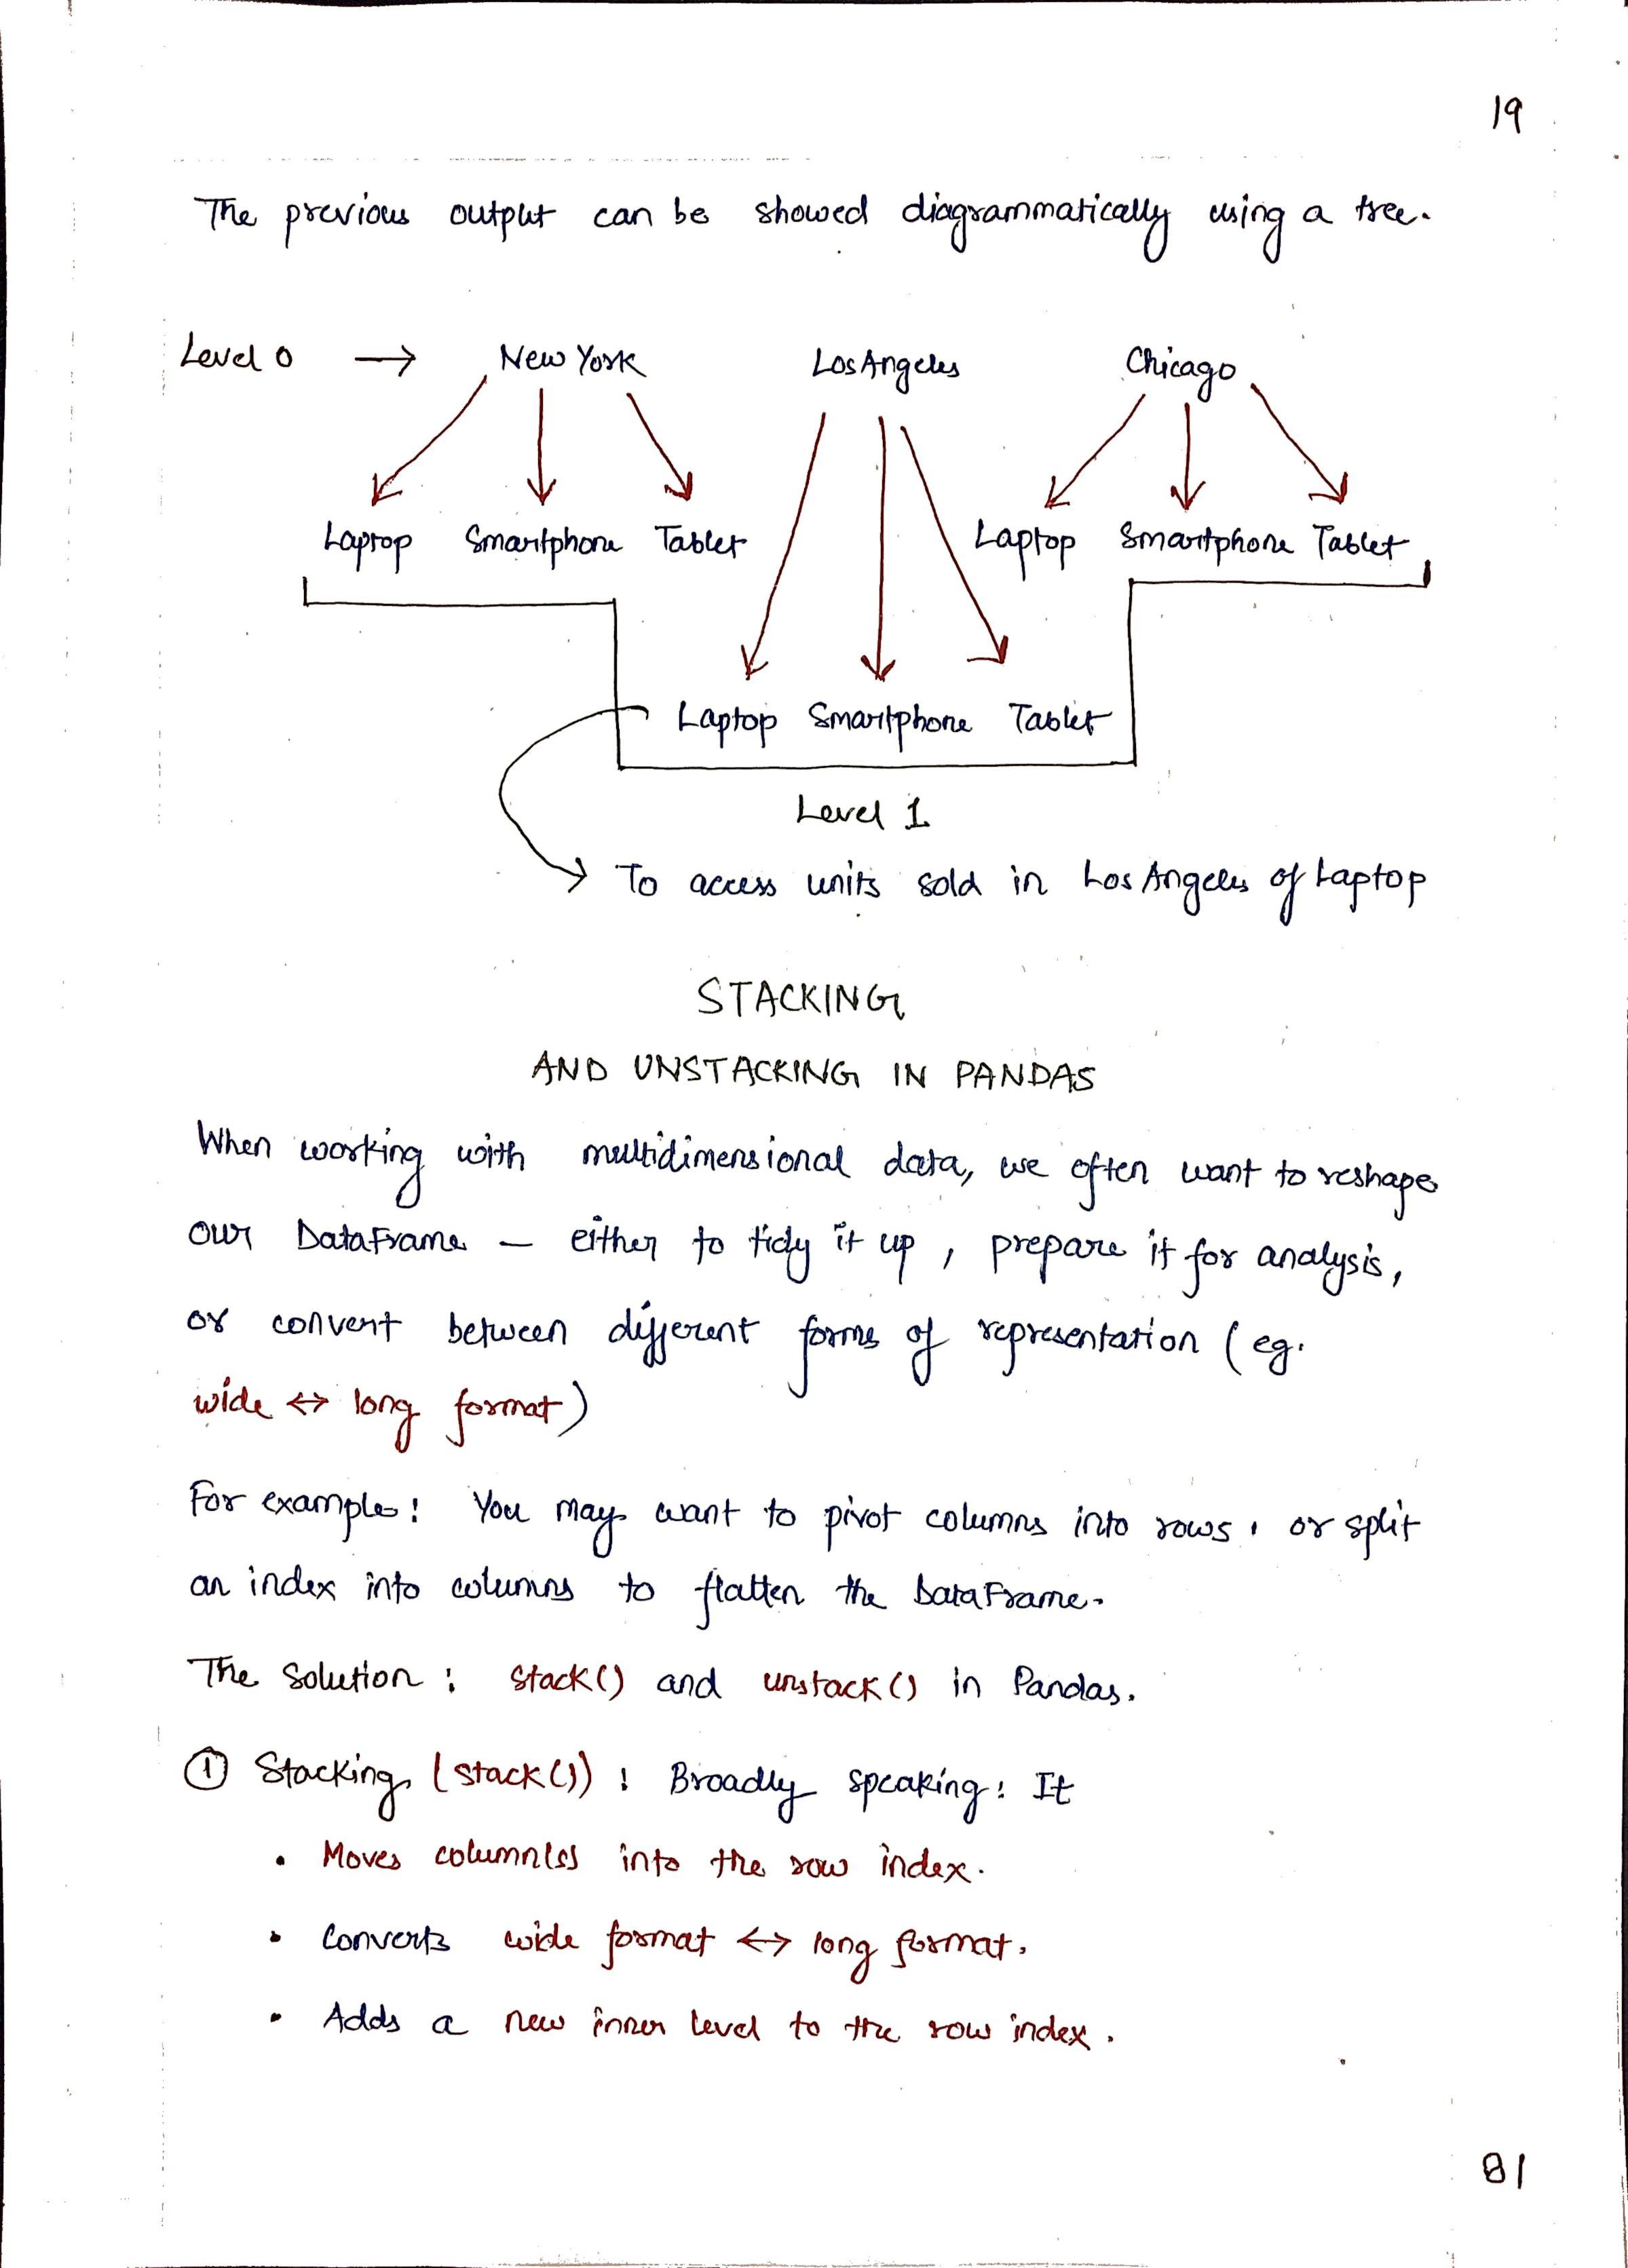 19
The previous output can be showed diagrammatically using a tree.
Level 0 → New York Los Angeles Chicago
Laptop Smartphone Tablet Laptop Smartphone Tablet
Laptop Smartphone Tablet
Level 1
→ To access units sold in Los Angeles of Laptop
STACKING
AND UNSTACKING IN PANDAS
When working with multidimensional data, we often want to reshape
our DataFrame – either to tidy it up, prepare it for analysis,
or convert between different forms of representation (eg.
wide ↔ long format)
For example: You may want to pivot columns into rows, or split
an index into columns to flatten the DataFrame.
The Solution : Stack() and unstack() in Pandas.
① Stacking (stack()) : Broadly speaking: It
• Moves column(s) into the row index.
• Converts wide format ↔ long format.
• Adds a new inner level to the row index.
81